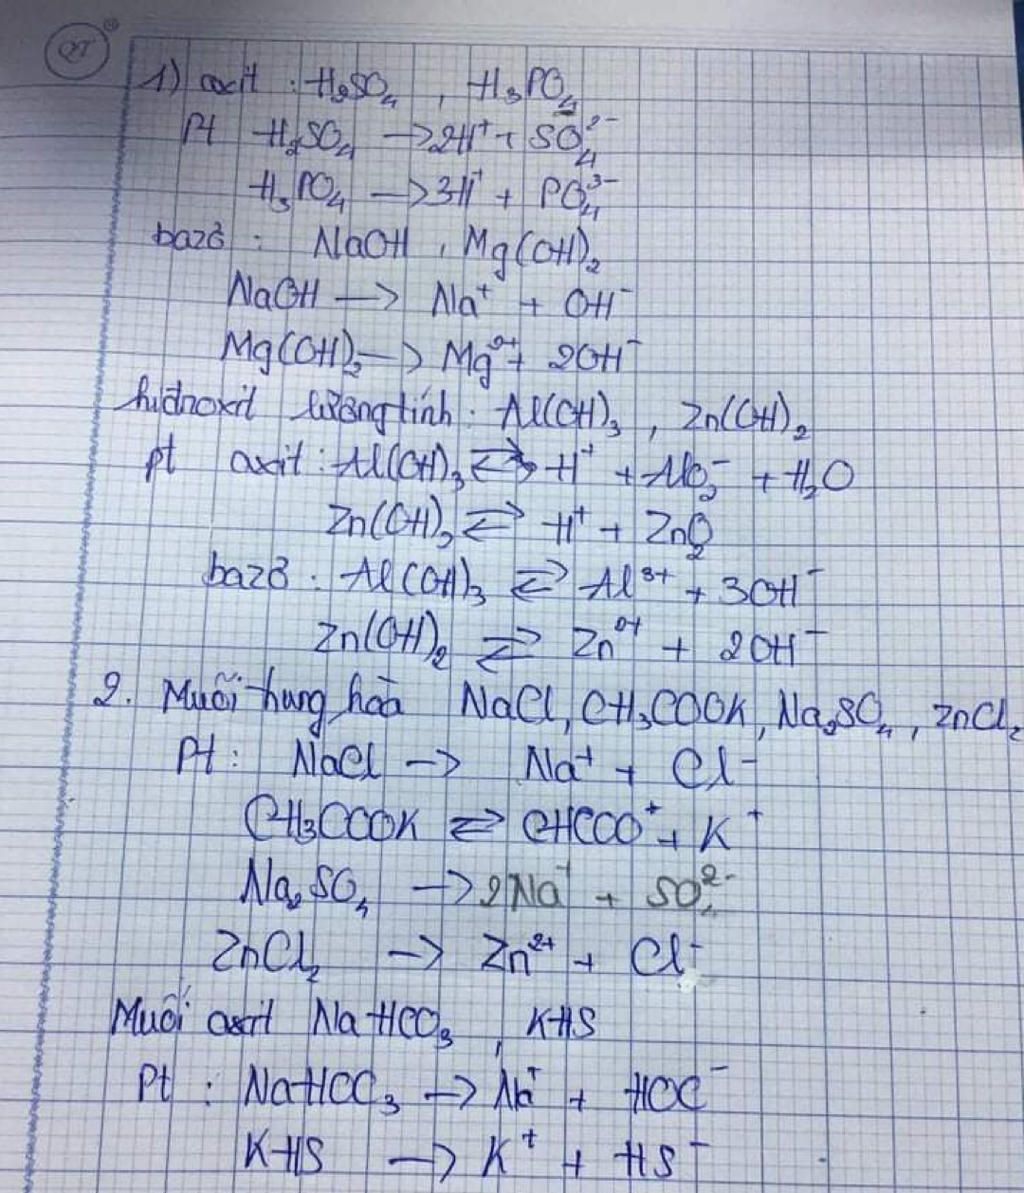 1) axit : H₂SO₄ , H₃PO₄
Pt H₂SO₄ → 2H⁺ + SO₄²⁻
H₃PO₄ → 3H⁺ + PO₄³⁻
bazơ : NaOH , Mg(OH)₂
NaOH → Na⁺ + OH⁻
Mg(OH)₂ → Mg²⁺ + 2OH⁻
hiđroxit lưỡng tính : Al(OH)₃ , Zn(OH)₂
pt axit : Al(OH)₃ ⇄ H⁺ + AlO₂⁻ + H₂O
Zn(OH)₂ ⇄ H⁺ + ZnO₂
bazơ : Al(OH)₃ ⇄ Al³⁺ + 3OH⁻
Zn(OH)₂ ⇄ Zn²⁺ + 2OH⁻
2. Muối trung hoà NaCl, CH₃COOK, Na₂SO₄, ZnCl₂
Pt : NaCl → Na⁺ + Cl⁻
CH₃COOK ⇄ CHCOO⁺ + K⁺
Na₂SO₄ → 2Na⁺ + SO₄²⁻
ZnCl₂ → Zn²⁺ + Cl⁻
Muối axit NaHCO₃, KHS
Pt : NaHCO₃ → Na⁺ + HCO⁻
KHS → K⁺ + HS⁻